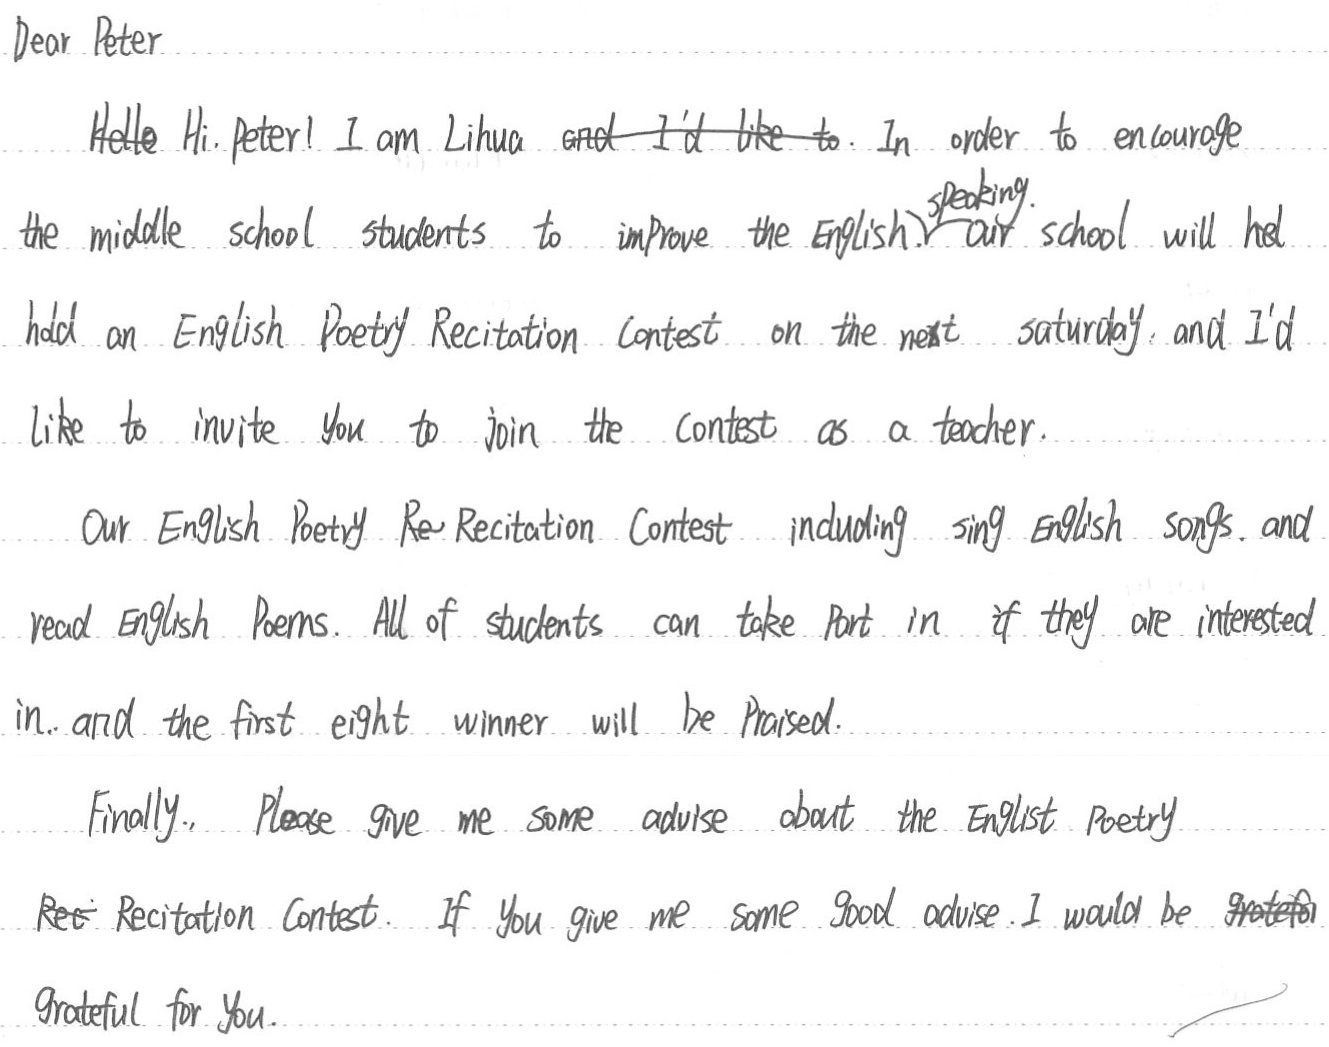 Dear Peter
Hello Hi. Peter! I am Lihua and I'd like to. In order to encourage
the middle school students to improve the English speaking. our school will hel
hold an English Poetry Recitation Contest on the next saturday. and I'd
like to invite you to join the contest as a teacher.
Our English Poetry Re Recitation Contest including sing English songs. and
read English Poems. All of students can take Part in if they are interested
in. and the first eight winner will be Praised.
Finally., Please give me some advise about the Englist Poetry
Rec Recitation Contest. If you give me some good advise. I would be
grateful for you.